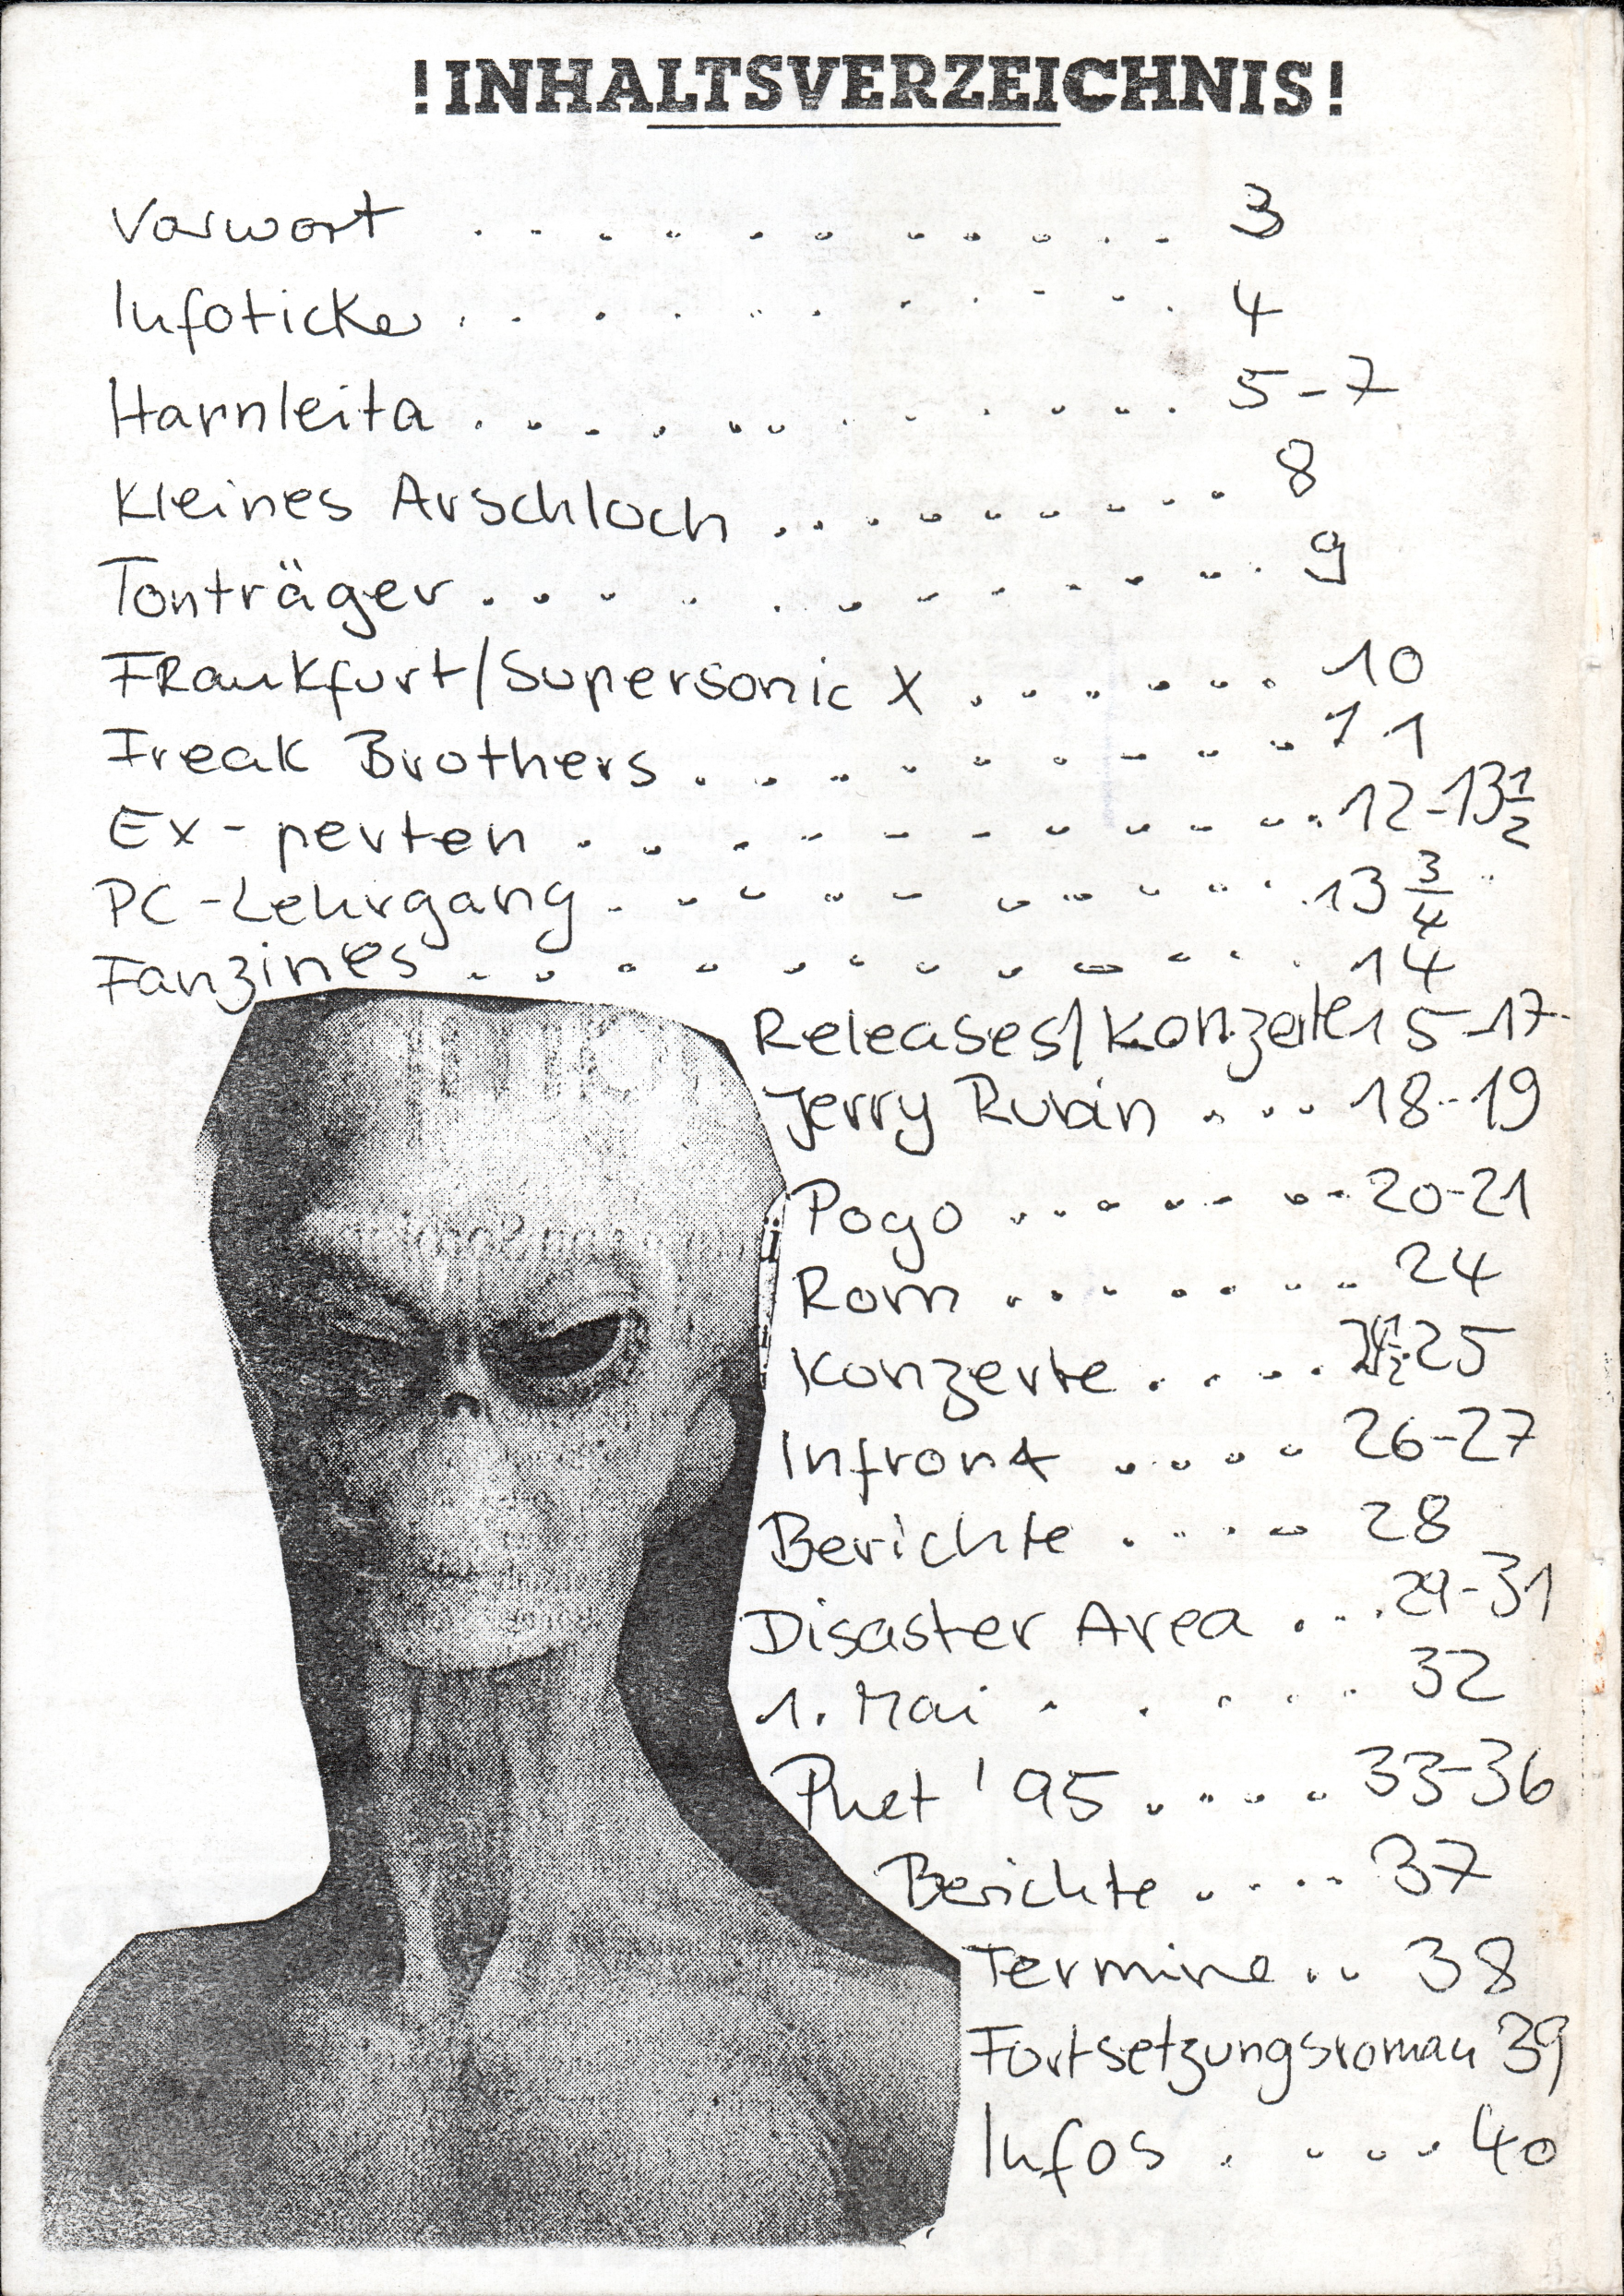 !INHALTSVERZEICHNIS!
Vorwort . . . . . . . . . . . 3
Infoticker . . . . . . . . . . 4
Harnleita . . . . . . . . . . . 5-7
Kleines Arschloch . . . . . . . . . 8
Tonträger . . . . . . . . . . . 9
Frankfurt/Supersonic X . . . . . . 10
Freak Brothers . . . . . . . . . 11
Ex-perten . . . . . . . . . . . 12-13 1/2
PC-Lehrgang . . . . . . . . . . 13 3/4
Fanzines . . . . . . . . . . . . 14
Releases/Konzerte 15-17
Jerry Rubin . . . . 18-19
Pogo . . . . . . . . 20-21
Rom . . . . . . . . 24
Konzerte . . . . . 24 1/2-25
Infront . . . . 26-27
Berichte . . . . 28
Disaster Area . . . . 29-31
1. Mai . . . . . 32
Phet '95 . . . . . 33-36
Berichte . . . . . 37
Termine . . 38
Fortsetzungsroman 39
Infos . . . . 40